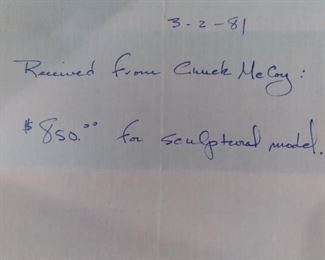 3-2-81
Received from Chuck McCoy:
$850.00 for sculptural model.